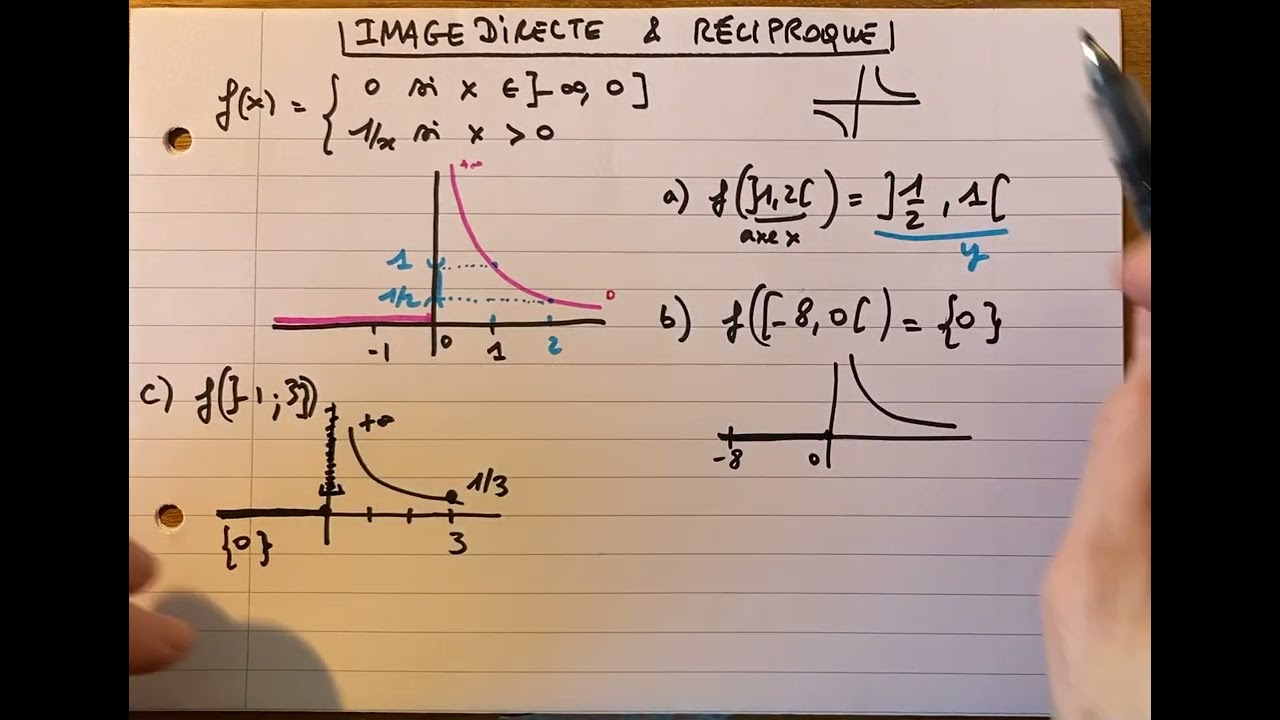 IMAGE DIRECTE & RÉCIPROQUE
f(x) = { 0 si x ∈ ]-∞, 0]
1/x si x > 0
+∞
1
1/2
0
-1 0 1 2
a) f(]1,2[) = ]1/2, 1[
axe x
y
b) f([-8, 0[) = {0}
-8 0
c) f(]-1 ; 3])
+∞
1/3
{0}
3